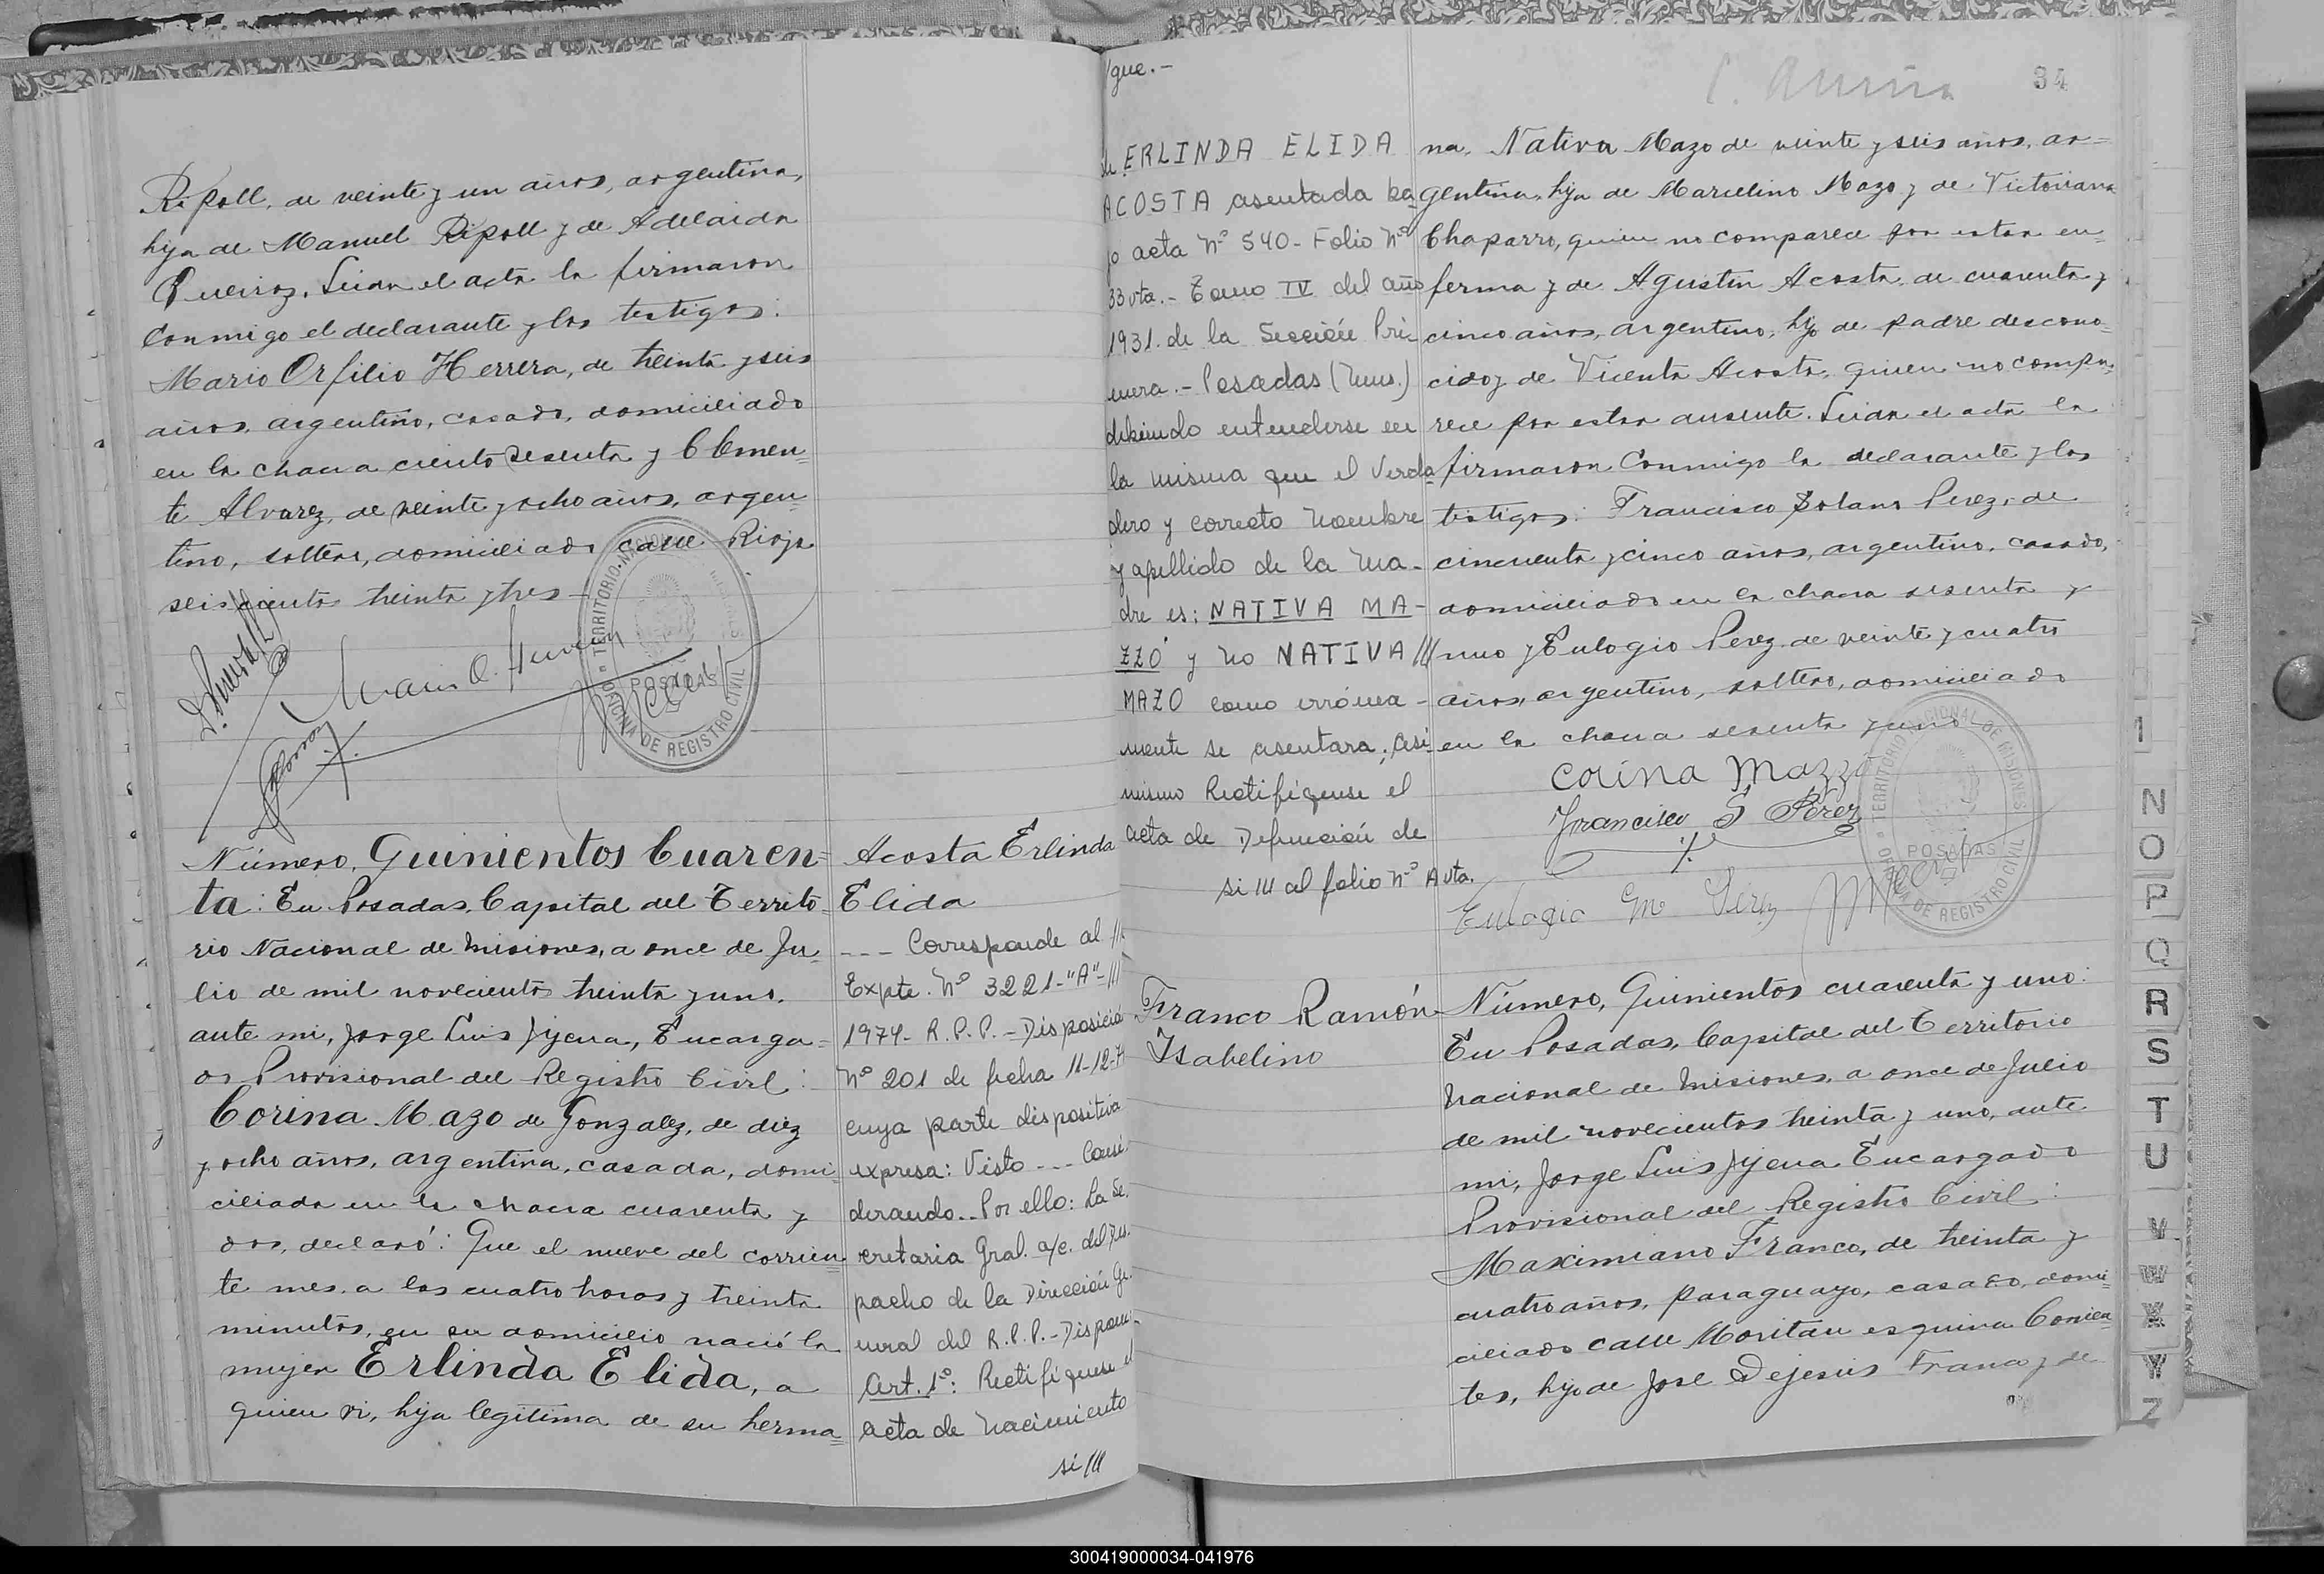 Ripoll, de veinte y un años, argentina,
hija de Manuel Ripoll y de Adelaida
Queiroz. Leida el acta la firmaron
Conmigo el declarante y los testigos:
Mario Orfilio Herrera, de treinta y seis
años, argentino, casado, domiciliado
en la chacra ciento sesenta y Clemen=
te Alvarez, de veinte y ocho años, argen=
tino, soltero, domiciliado calle Rioja
seiscientos treinta y tres
Mario O. Herrera
TERRITORIO NACIONAL DE MISIONES
POSADAS
OFICINA DE REGISTRO CIVIL
Número, Quinientos Cuaren=
ta: En Posadas, Capital del Territo=
rio Nacional de Misiones, a once de Ju=
lio de mil novecientos treinta y uno,
ante mi, Jorge Luis Jijena, Encarga=
do Provisional del Registro Civil:
Corina Mazo de Gonzalez, de diez
y ocho años, argentina, casada, domi=
ciliada en la chacra cuarenta y
dos, declaró: Que el nueve del corrien=
te mes, a las cuatro horas y treinta
minutos, en su domicilio nació la
mujer Erlinda Elida, a
quien vi, hija legítima de su herma=
Acosta Erlinda
Elida
--- Corresponde al ///
Expte. Nº 3221-"A"-///
1974- R.P.P.- Disposició
Nº 201 de fecha 11-12-7
cuya parte dispositiva
expresa: Visto --- Consi
derando.. Por ello: La Se.
cretaria Gral. a/c. del Des.
pacho de la Dirección Ge.
neral del R.P.P.- Dispone:
Art. 1º: Rectifíquese el
acta de Nacimiento
si ///
/gue.-
de ERLINDA ELIDA
ACOSTA asentada ba
jo acta Nº 540- Folio Nº
33 vta.- Tomo IV del año
1931. de la Sección Pri
mera.- Posadas (Mnes.)
debiendo entenderse en
la misma que el Verda
dero y correcto nombre
y apellido de la Ma-
dre es: NATIVA MA-
ZZO y no NATIVA ///
MAZO como erronea-
mente se asentara; asi
mismo Rectifíquese el
acta de Defunción de
si /// al folio Nº A vta.
34
na, Nativa Mazo de veinte y seis años, ar=
gentina, hija de Marcelino Mazo y de Victoriana
Chaparro, quien no comparece por estar en=
ferma y de Agustin Acosta, de cuarenta y
cinco años, argentino, hijo de padre descono=
cido y de Vicenta Acosta, quien no compa=
rece por estar ausente. Leida el acta la
firmaron Conmigo la declarante y los
testigos: Francisco Solano Perez, de
cincuenta y cinco años, argentino, casado,
domiciliado en la chacra sesenta y
uno y Eulogio Perez, de veinte y cuatro
años, argentino, soltero, domiciliado
en la chacra sesenta y uno
Corina Mazzo
Francisco S Pérez
Eulogio M Perez
TERRITORIO NACIONAL DE MISIONES
POSADAS
OFICINA DE REGISTRO CIVIL
Franco Ramón
Isabelino
Número, Quinientos cuarenta y uno:
En Posadas, Capital del Territorio
Nacional de Misiones, a once de Julio
de mil novecientos treinta y uno, ante
mi, Jorge Luis Jijena Encargado
Provisional del Registro Civil:
Maximiano Franco, de treinta y
cuatro años, paraguayo, casado, domi=
ciliado calle Moritan esquina Corrien=
tes, hijo de José Dejesús Franco y de
I
N
O
P
Q
R
S
T
U
V
W
X
Y
Z
300419000034-041976